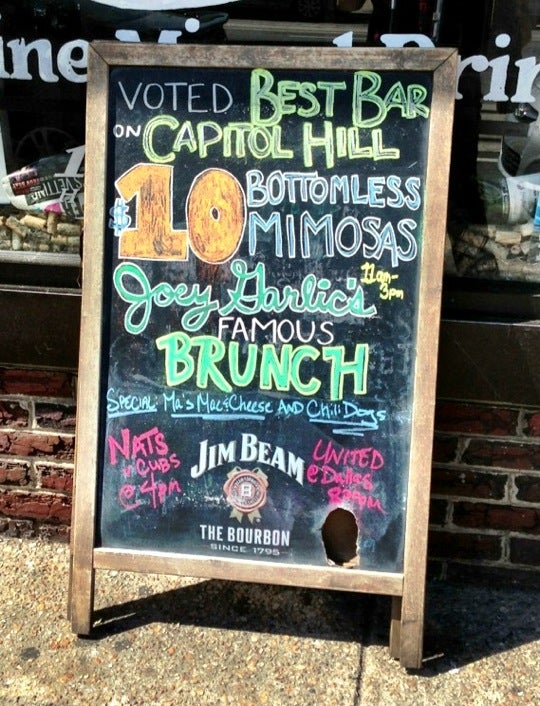 VOTED BEST BAR
ON CAPITOL HILL
$10 BOTTOMLESS
MIMOSAS
11am-
3pm
Joey Garlic's
FAMOUS
BRUNCH
SPECIAL: Ma's Mac & Cheese AND Chili Dogs
NATS
v. CUBS
@ 4pm
JIM BEAM
B
UNITED
@ Dallas
THE BOURBON
SINCE 1795
ine